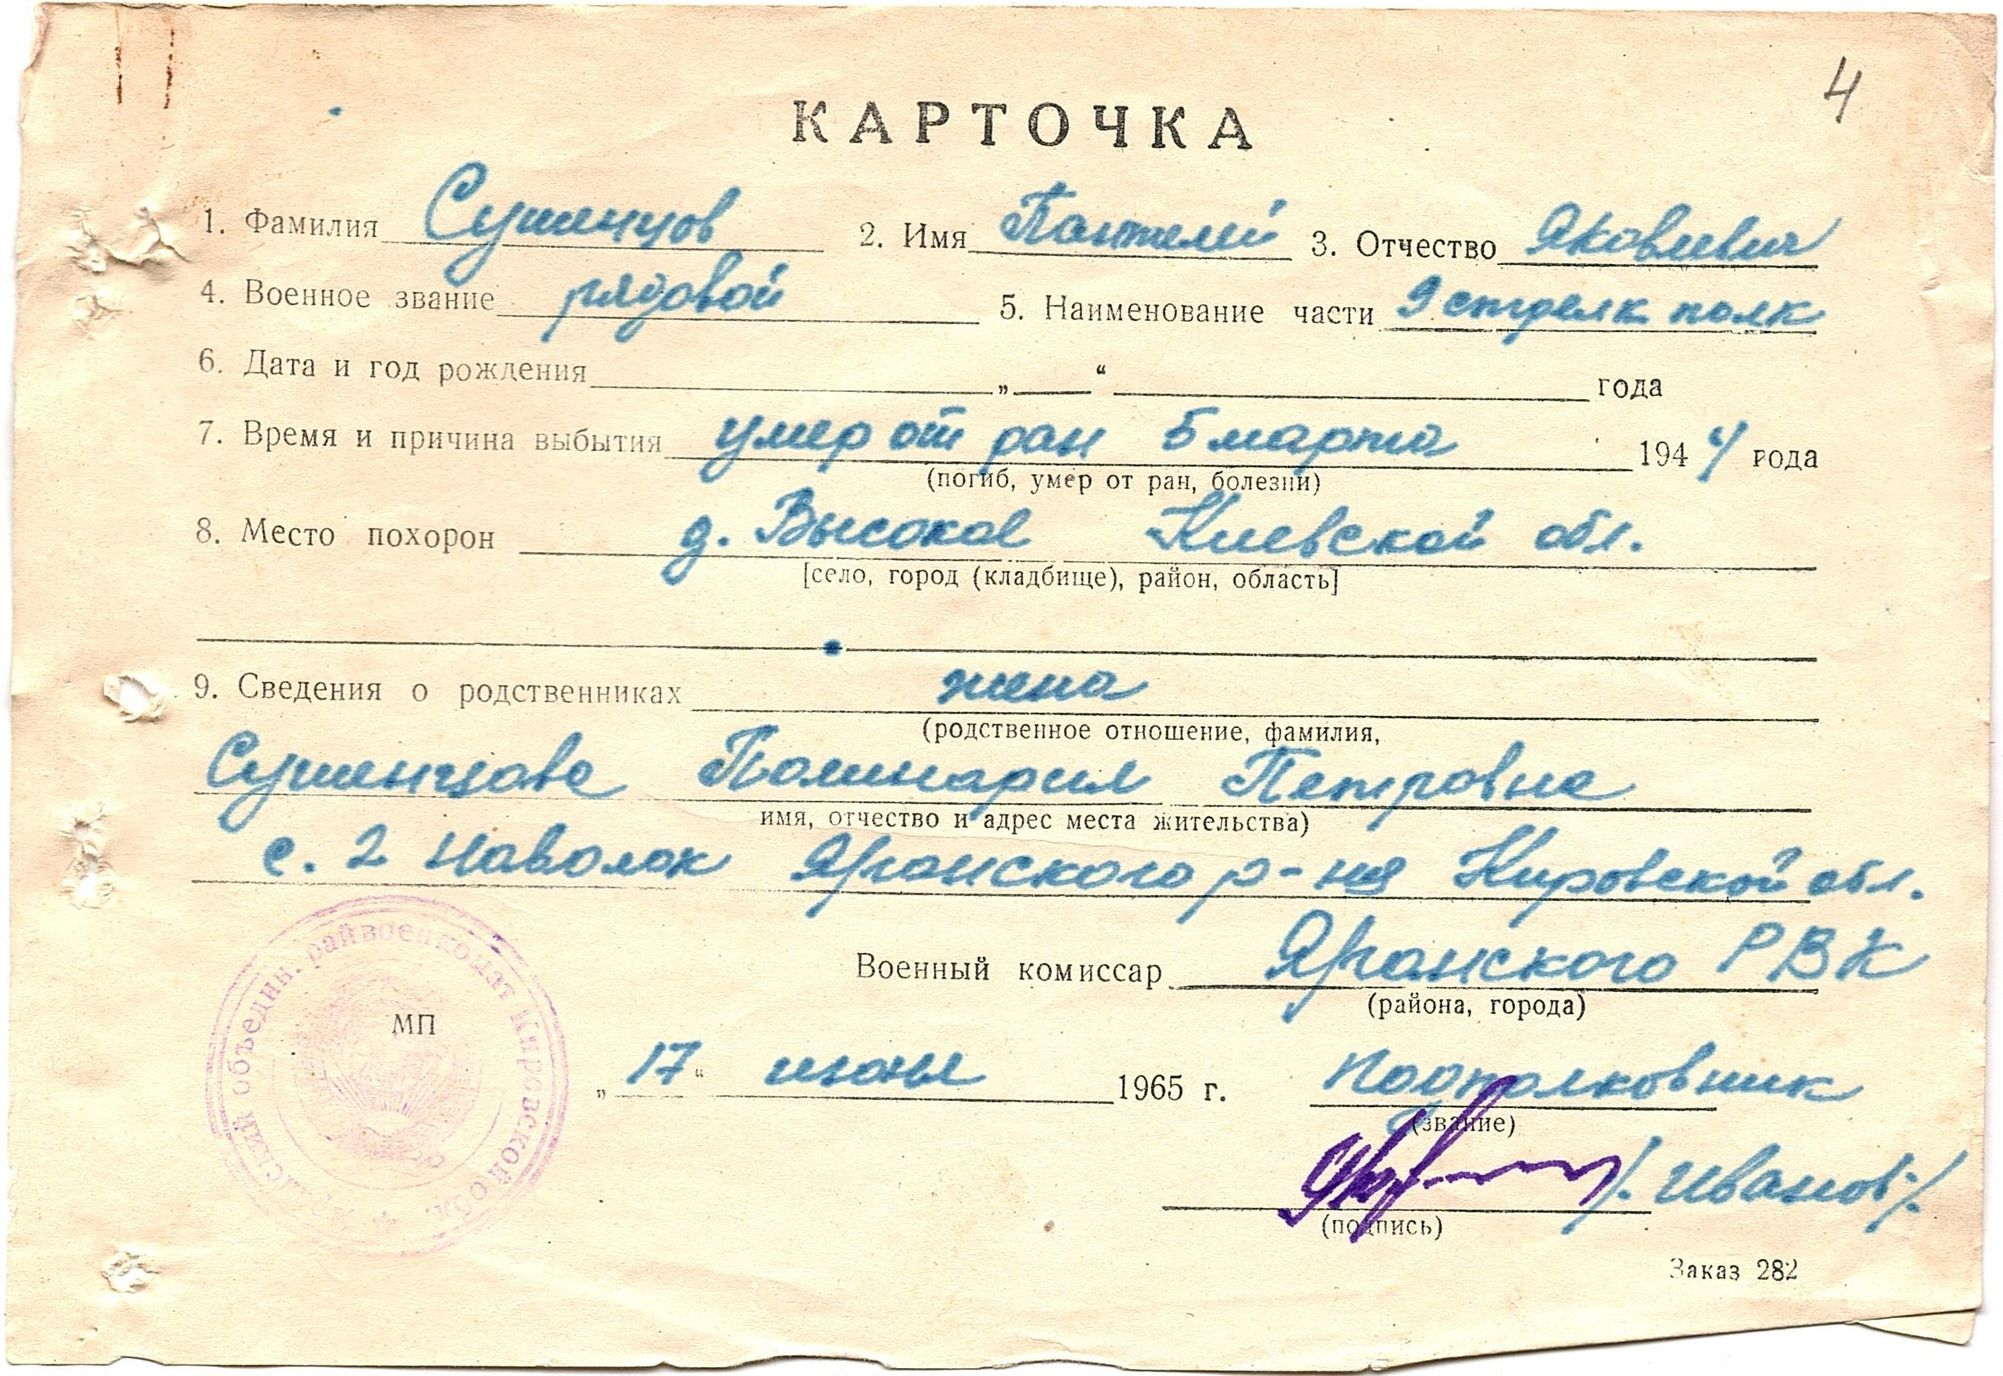 4
КАРТОЧКА
1. Фамилия Сушенцов 2. Имя Пантелей 3. Отчество Яковлевич
4. Военное звание рядовой 5. Наименование части 9 стрелк полк
6. Дата и год рождения „ “ года
7. Время и причина выбытия умер от ран 5 марта 1944 года
(погиб, умер от ран, болезни)
8. Место похорон д. Высокое Киевской обл.
[село, город (кладбище), район, область]
9. Сведения о родственниках жена
(родственное отношение, фамилия,
Сушенцова Полинария Петровна
имя, отчество и адрес места жительства)
с. 2 Наволок Яранского р-на Кировской обл.
Военный комиссар Яранского РВК
(района, города)
МП
„17“ июня 1965 г. Подполковник
(звание)
/. Иванов /.
(подпись)
Заказ 282
объедин. райвоенкомат Кировской обл.